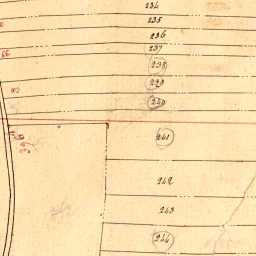 234
235
236
237
238
239
240
241
242
243
244